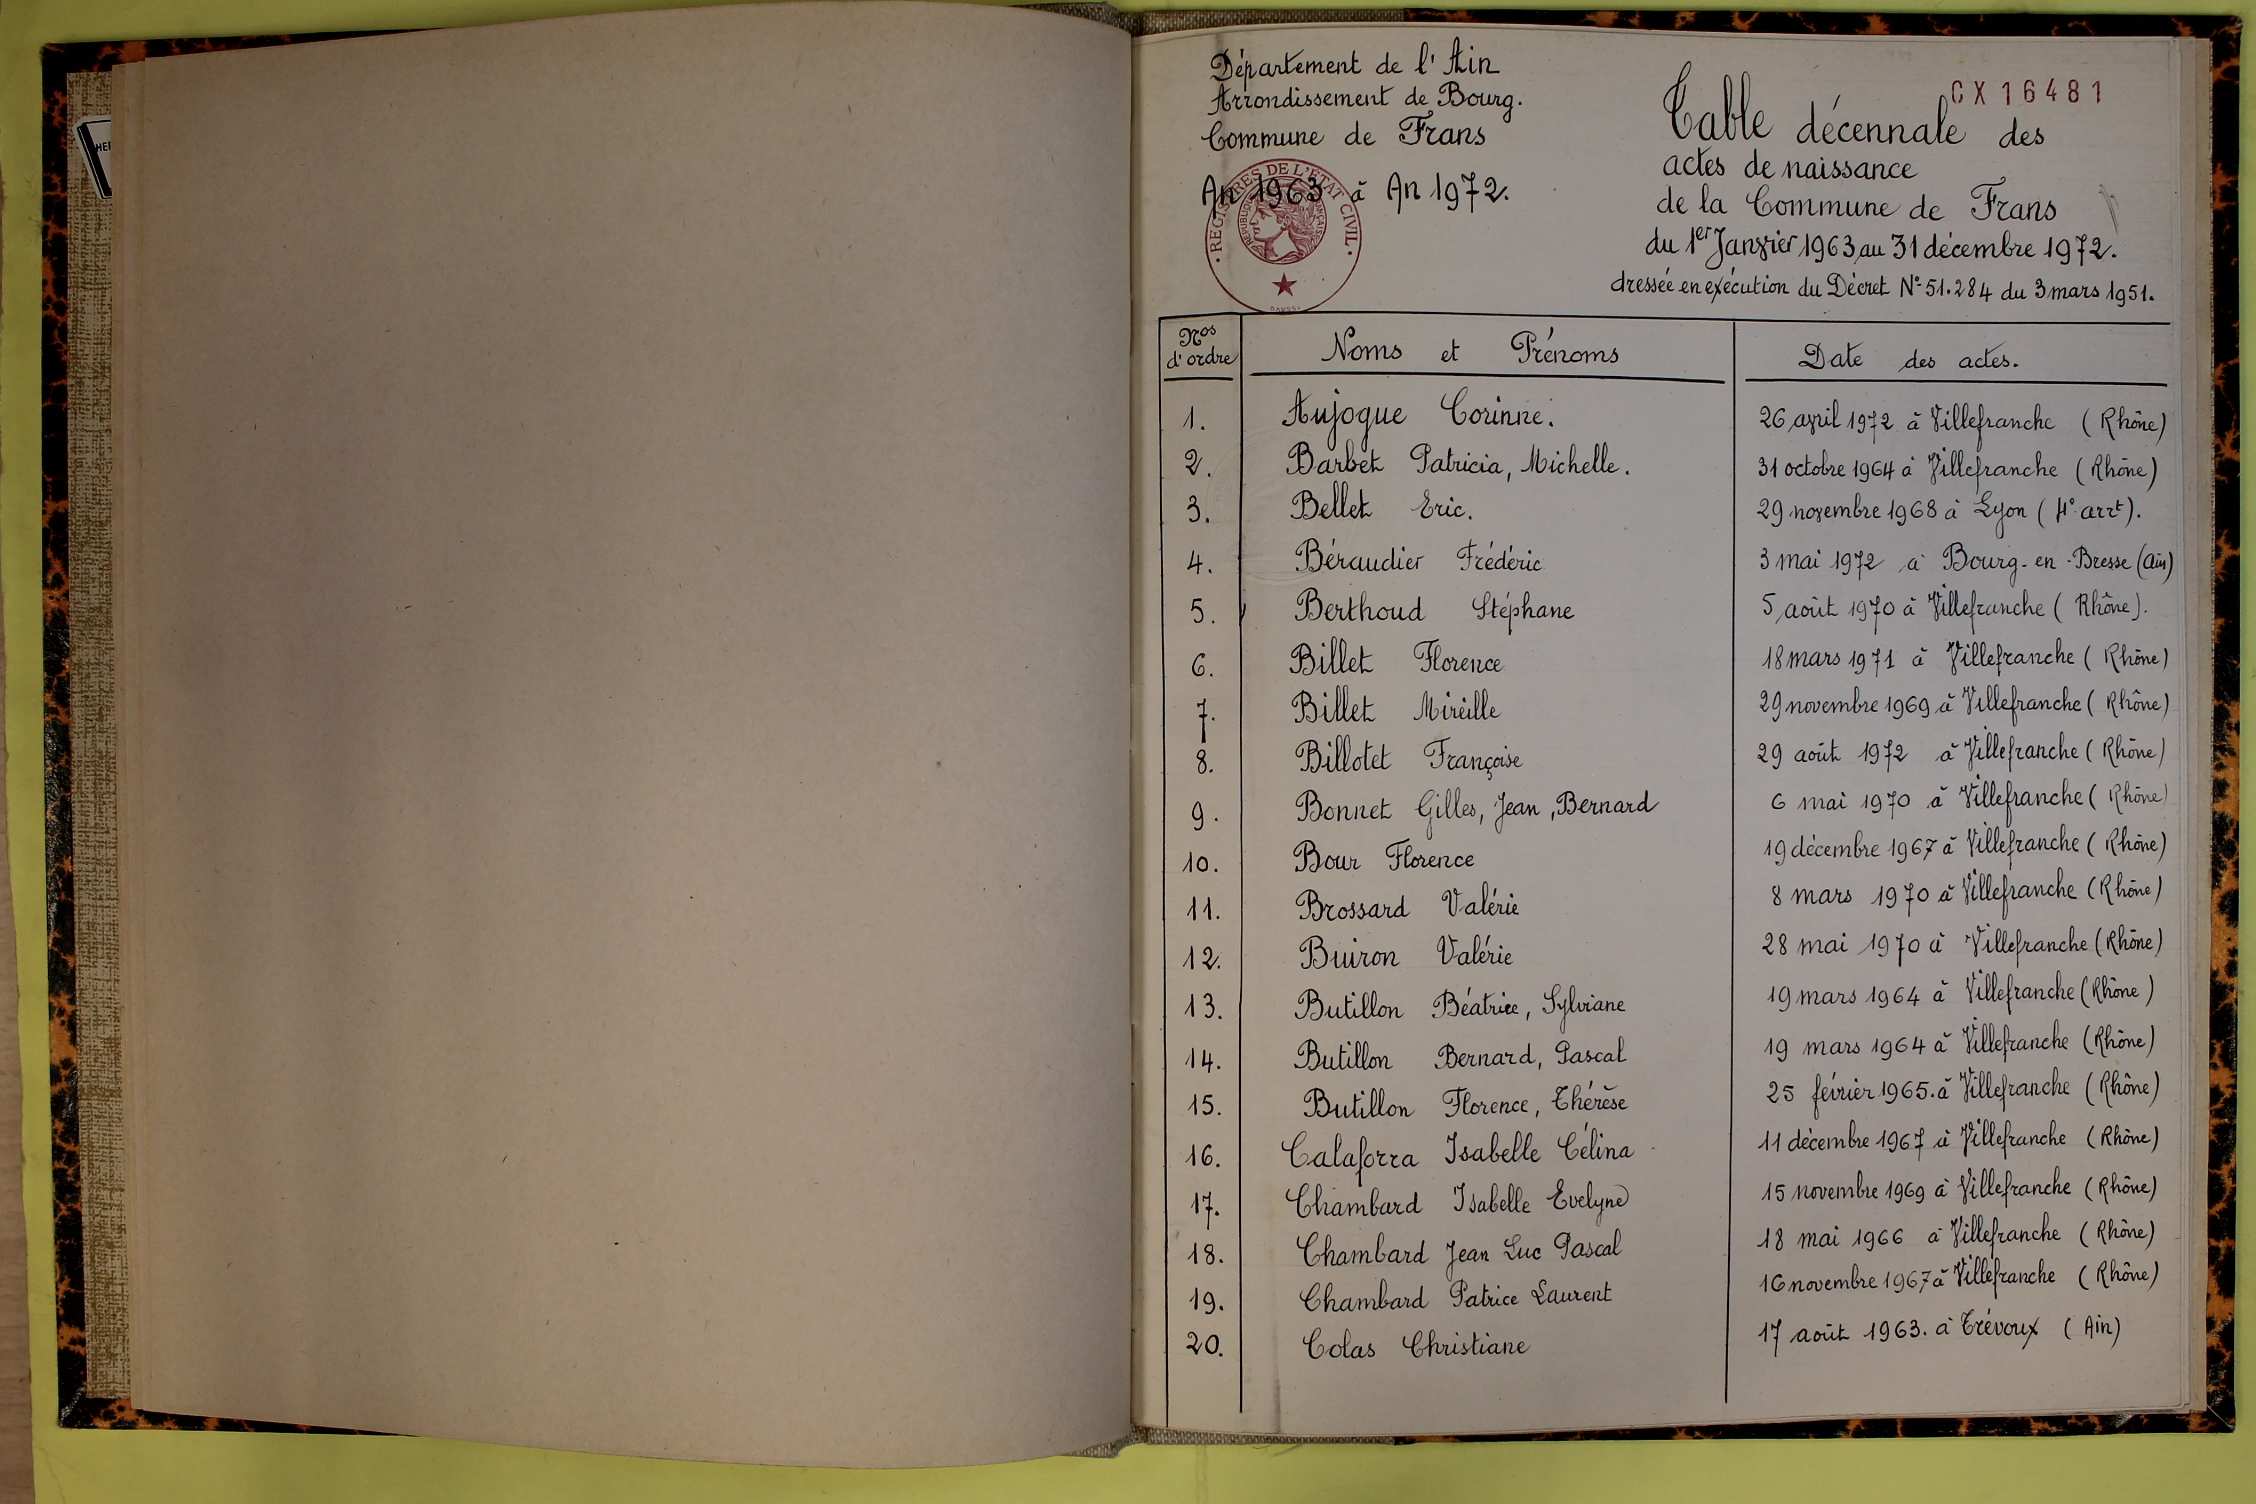 Département de l'Ain
Arrondissement de Bourg.
Commune de Frans
An 1963 à An 1972.
REGISTRES DE L'ÉTAT CIVIL
CX 16481
Table décennale des
actes de naissance
de la Commune de Frans
du 1er Janvier 1963 au 31 décembre 1972.
dressée en exécution du Décret N° 51.284 du 3 mars 1951.
Nos d'ordre Noms et Prénoms Date des actes.
1. Aujogue Corinne. 26 avril 1972 à Villefranche (Rhône)
2. Barbet Patricia, Michelle. 31 octobre 1964 à Villefranche (Rhône)
3. Bellet Eric. 29 novembre 1968 à Lyon (4° arrt).
4. Béraudier Frédéric 3 mai 1972 à Bourg-en-Bresse (Ain)
5. Berthoud Stéphane 5 août 1970 à Villefranche (Rhône).
6. Billet Florence 18 mars 1971 à Villefranche (Rhône)
7. Billet Mireille 29 novembre 1969 à Villefranche (Rhône)
8. Billotet Françoise 29 août 1972 à Villefranche (Rhône)
9. Bonnet Gilles, Jean, Bernard 6 mai 1970 à Villefranche (Rhône)
10. Bour Florence 19 décembre 1967 à Villefranche (Rhône)
11. Brossard Valérie 8 mars 1970 à Villefranche (Rhône)
12. Buiron Valérie 28 mai 1970 à Villefranche (Rhône)
13. Butillon Béatrice, Sylviane 19 mars 1964 à Villefranche (Rhône)
14. Butillon Bernard, Pascal 19 mars 1964 à Villefranche (Rhône)
15. Butillon Florence, Thérèse 25 février 1965. à Villefranche (Rhône)
16. Calaforra Isabelle Célina 11 décembre 1967 à Villefranche (Rhône)
17. Chambard Isabelle Evelyne 15 novembre 1969 à Villefranche (Rhône)
18. Chambard Jean Luc Pascal 18 mai 1966 à Villefranche (Rhône)
19. Chambard Patrice Laurent 16 novembre 1967 à Villefranche (Rhône)
20. Colas Christiane 17 août 1963. à Trévoux (Ain)